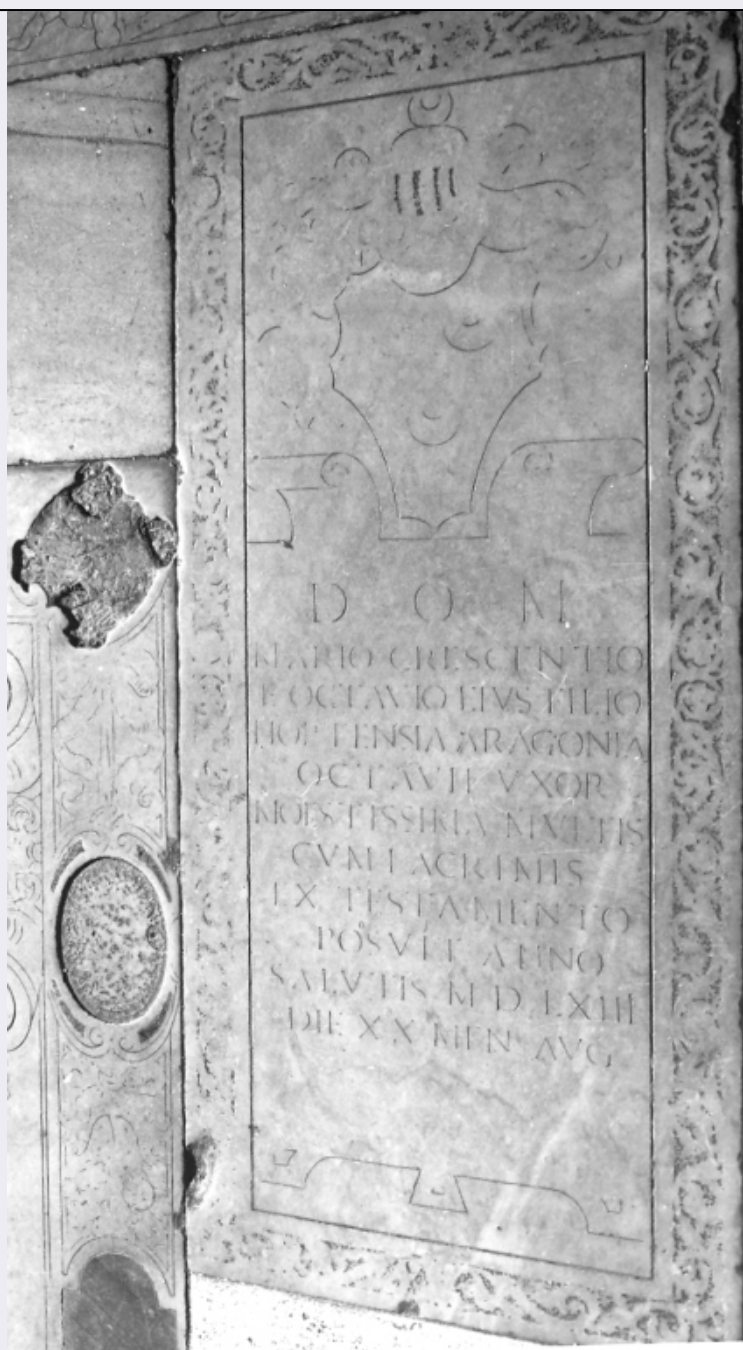 D O M
MARIO CRESCENTIO
E OCTAVIO EIVS FILIO
HORTENSIA ARAGONIA
OCTAVII VXOR
MOESTISSIMA MVLTIS
CVM LACRIMIS
EX TESTAMENTO
POSVIT ANNO
SALVTIS M D LXIIII
DIE XX MENS AVG